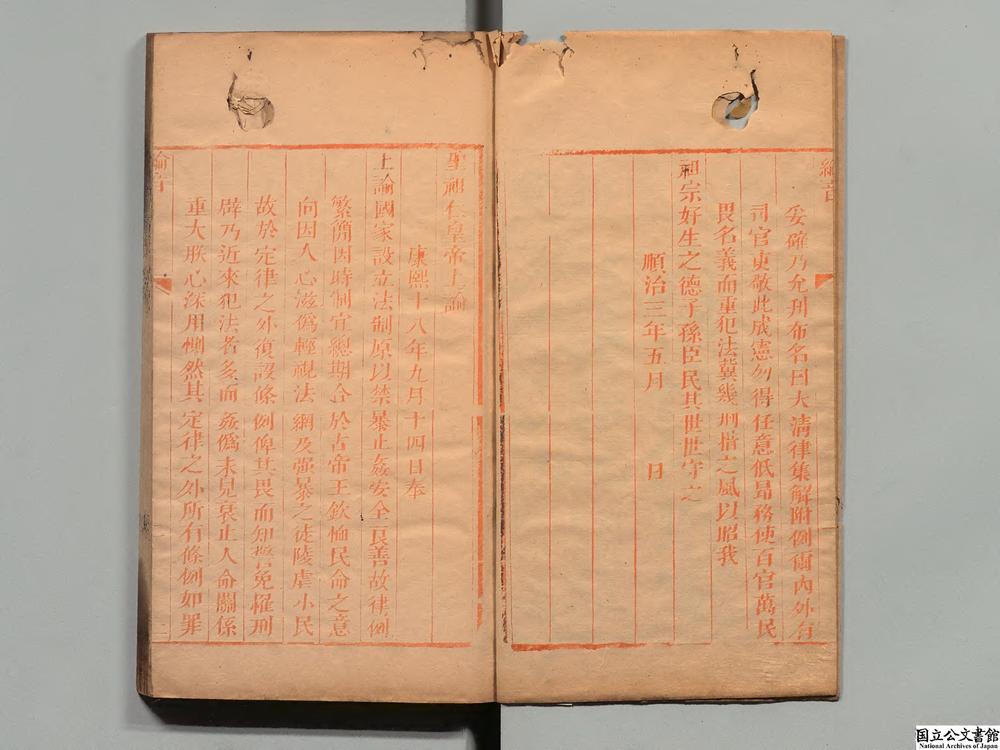 綸音
妥確乃允刊布名曰大清律集解附例爾內外有
司官吏敬此成憲勿得任意低昻務使百官萬民
畏名義而重犯法冀幾刑措之風以昭我
祖宗好生之德子孫臣民其世世守之
順治三年五月　日
聖祖仁皇帝上諭
康熙十八年九月十四日奉
上諭國家設立法制原以禁暴止姦安全良善故律例
繁簡因時制宜總期合於古帝王欽恤民命之意
向因人心滋僞輕視法網及强暴之徒陵虐小民
故於定律之外復設條例俾其畏而知警免罹刑
辟乃近來犯法者多而姦僞未見衰止人命關係
重大朕心深用惻然其定律之外所有條例如罪
國立公文書館
National Archives of Japan